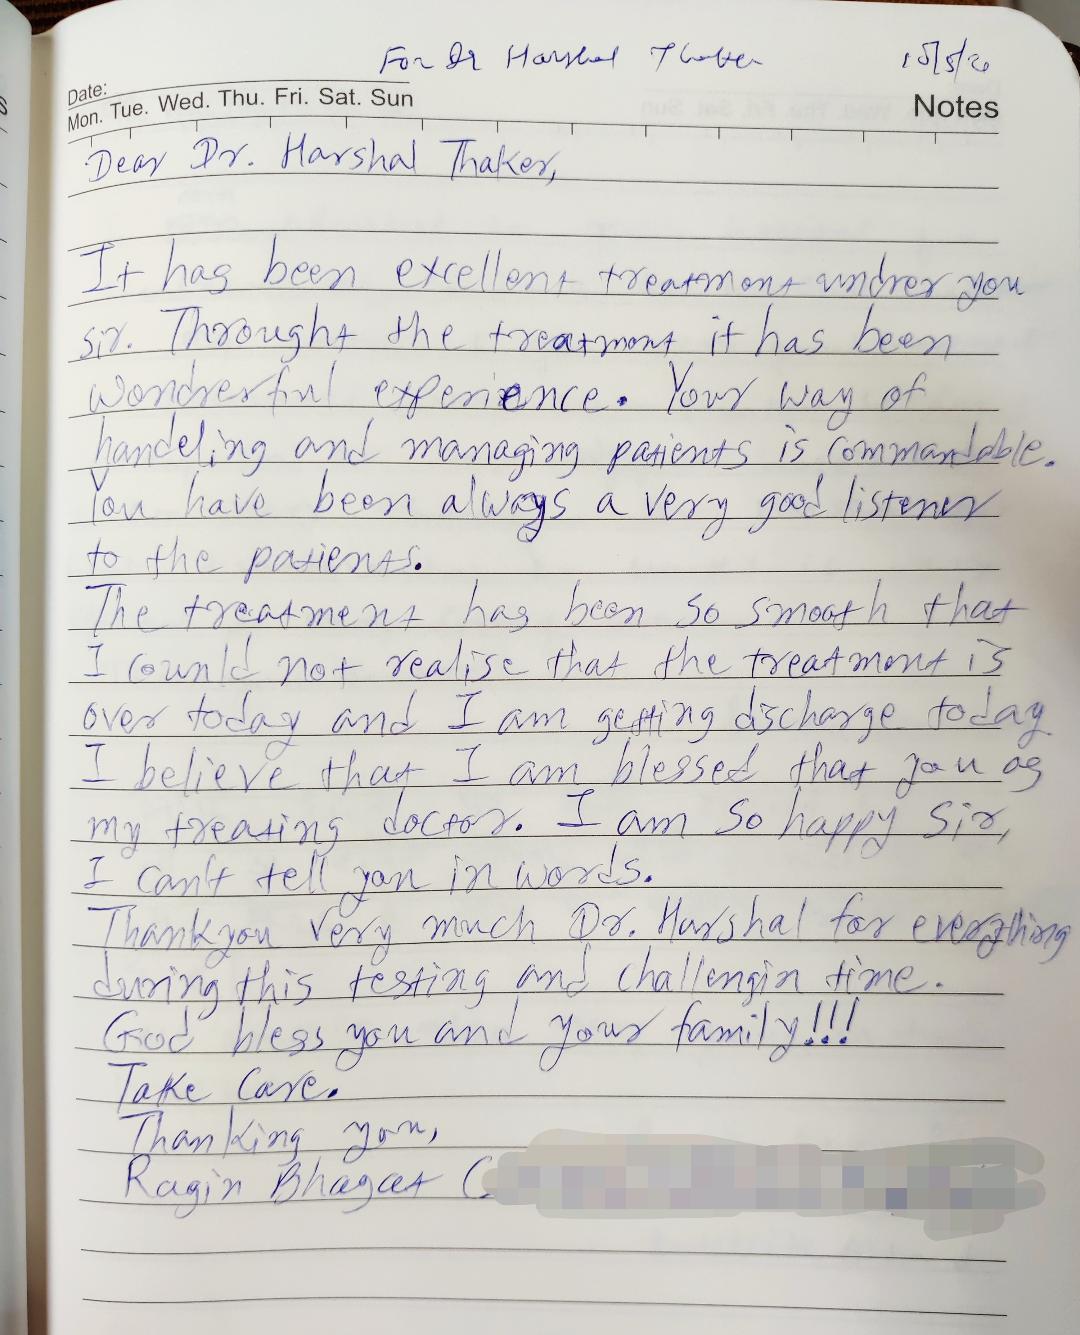 For Dr Harshal Thaker
Date:
Mon. Tue. Wed. Thu. Fri. Sat. Sun
Notes
Dear Dr. Harshal Thaker,
It has been excellent treatment undrer you
sir. Throught the treatment it has been
wondrerful experience. Your way of
handeling and managing patients is commandable.
You have been always a very good listener
to the patients.
The treatment has been so smooth that
I counld not realise that the treatment is
over today and I am getting discharge today
I believe that I am blessed that you as
my treating doctor. I am so happy Sir,
I can't tell you in words.
Thankyou very much Dr. Harshal for everything
during this testing and challengin time.
God bless you and your family!!!
Take Care.
Thanking you,
Ragin Bhagat (